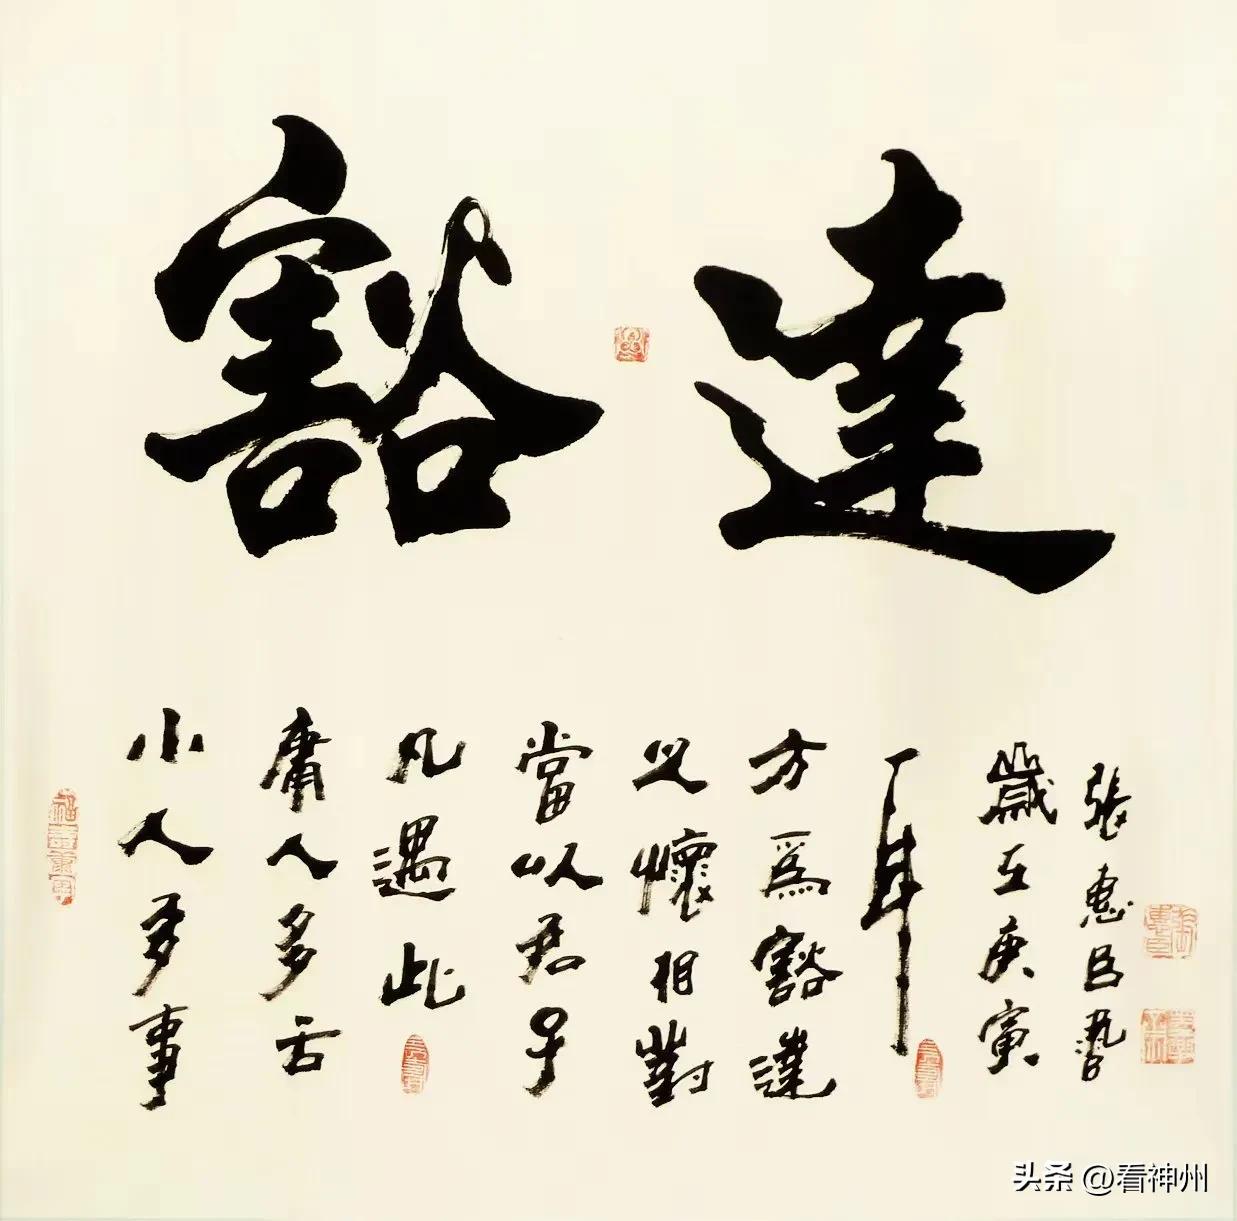 豁達
小人多事
庸人多舌
凡遇此
當以君子
之懷相對
方爲豁達
耳
歲在庚寅
張惠臣
头条 @看神州